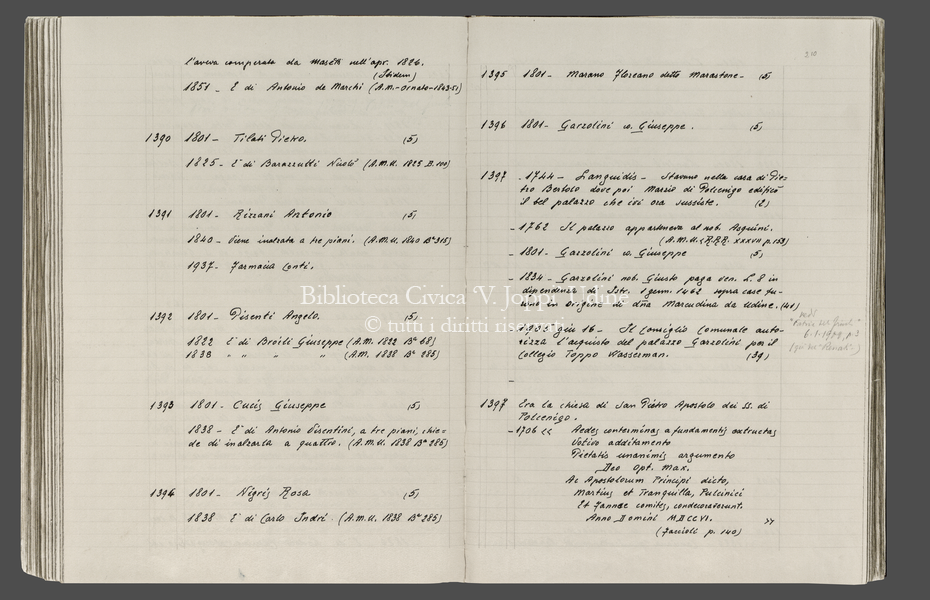 l'aveva comperata da Masetti nell'apr. 1826.
(Ibidem)
1851 - E' di Antonio de Marchi (A.M. - Ornato - 1843-51)
1390 1801 - Tilati Pietro. (5)
1825 - E' di Barazzutti Nicolò (A.M.U. 1825 B. 100)
1391 1801 - Rizzani Antonio (5)
1840 - Viene inalzata a tre piani. (A.M.U. 1840 Bª 315)
1937 - Farmacia Conti.
1392 1801 - Disenti Angelo. (5)
1822 E' di Broili Giuseppe (A.M. 1822 Bª 68)
1838 " " " " (A.M. 1838 Bª 285)
1393 1801 - Cucis Giuseppe (5)
1838 - E' di Antonio Disentini, a tre piani, chie=
de di inalzarla a quattro. (A.M.U. 1838 Bª 285)
1394 1801 - Nigris Rosa (5)
1838 E' di Carlo Indri (A.M.U. 1838 Bª 285)
210
1395 1801 - Marano Floreano detto Marastone - (5)
1396 1801 - Garzolini co. Giuseppe. (5)
1397 - 1744 - Languidis - Stavano nella casa di Pie=
tro Bertolo dove poi Marzio di Polcenigo edificò
il bel palazzo che ivi ora sussiste. (2)
- 1762 Il palazzo apparteneva al nob. Asquini.
(A.M.U. RRR. XXXVII p. 153)
- 1801 - Garzolini co. Giuseppe (5)
- 1834 - Garzolini nob. Giusto paga ven. L. 8 in
dipendenza di Istr. 1 genn. 1462 sopra case fu=
rono in origine di dña Marcudina da Udine. (41)
1908 giu 16 - Il Consiglio Comunale auto=
rizza l'acquisto del palazzo Garzolini per il
Collegio Toppo Wasserman. (39)
vedi
6-1-1900, p. 3
1397 Era la chiesa di San Pietro Apostolo dei SS. di
Polcenigo.
- 1706 << Aedes conterminas a fundamentis extructas
Votivo additamento
Pietatis unanimis argumento
Deo Opt. Max.
Ac Apostolorum Principi dicto,
Martius et Tranquilla, Pulcinici
Et Fannae comites, condecoraverunt.
Anno Domini MDCCVI. >>
(Faccioli p. 140)
Biblioteca Civica "V. Joppi" Udine
© tutti i diritti riservati